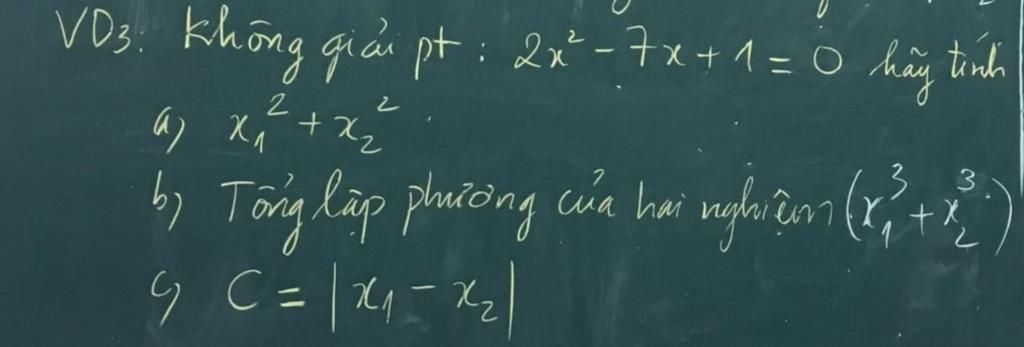 VD3: Không giải pt : 2x² - 7x + 1 = 0 hãy tính
a) x₁² + x₂²
b) Tổng lập phương của hai nghiệm (x₁³ + x₂³)
c) C = |x₁ - x₂|